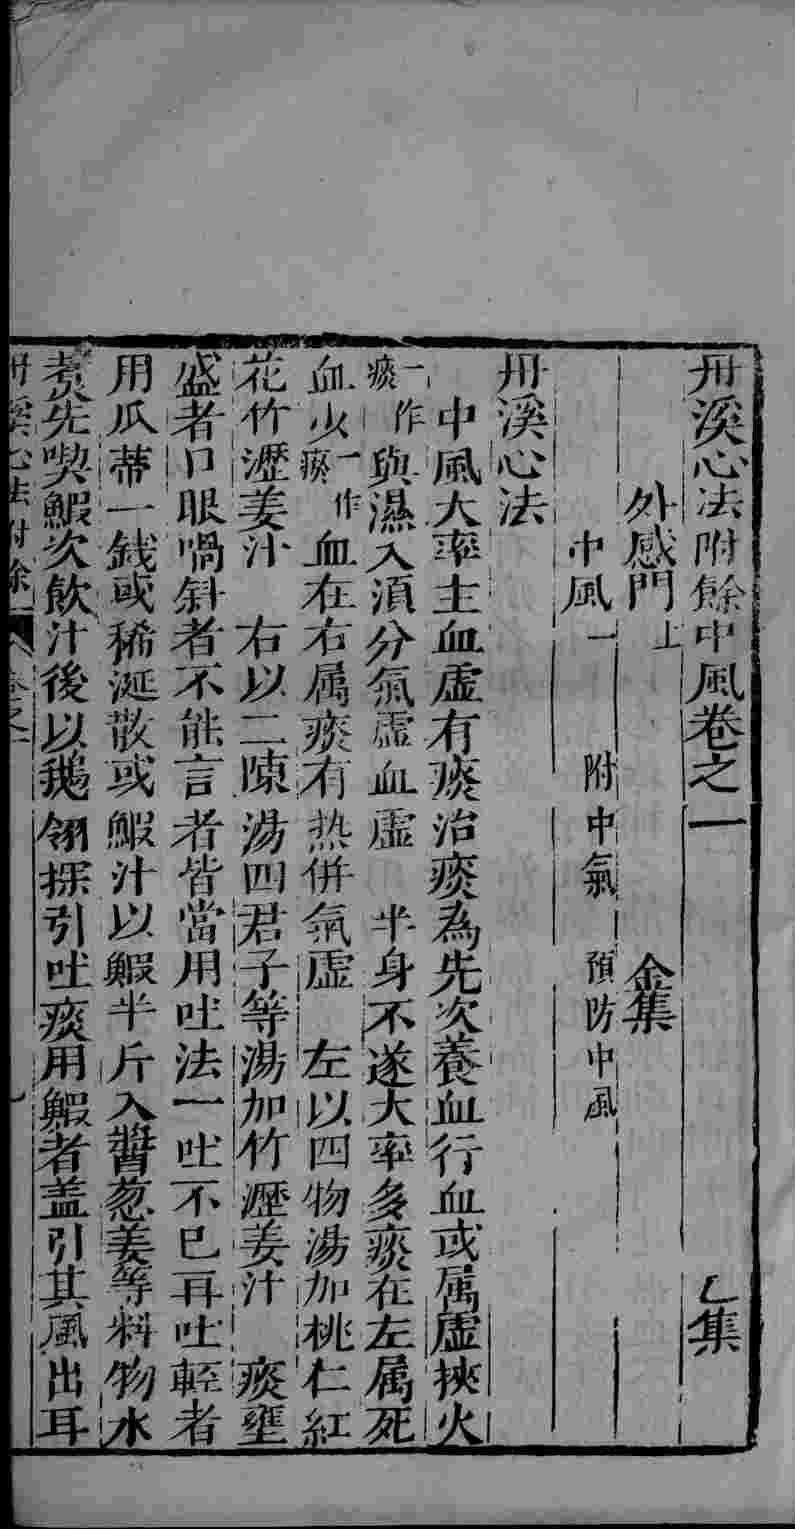 丹溪心法附餘中風卷之一　乙集
外感門上　金集
中風一　附中氣　預防中風
丹溪心法
中風大率主血虛有痰治痰為先次養血行血或属虛挾火
一作痰與濕入湏分氣虛血虛　半身不遂大率多痰在左属死
血少一作瘀血在右属痰有热併氣虛　左以四物湯加桃仁紅
花竹瀝姜汁　右以二陳湯四君子等湯加竹瀝姜汁　痰壅
盛者口眼喎斜者不能言者皆當用吐法一吐不已再吐輕者
用瓜蒂一錢或稀涎散或鰕汁以鰕半斤入醬葱姜等料物水
煑先喫鰕次飲汁後以鵝翎探引吐痰用鰕者盖引其風出耳
丹溪心法附餘　卷之一